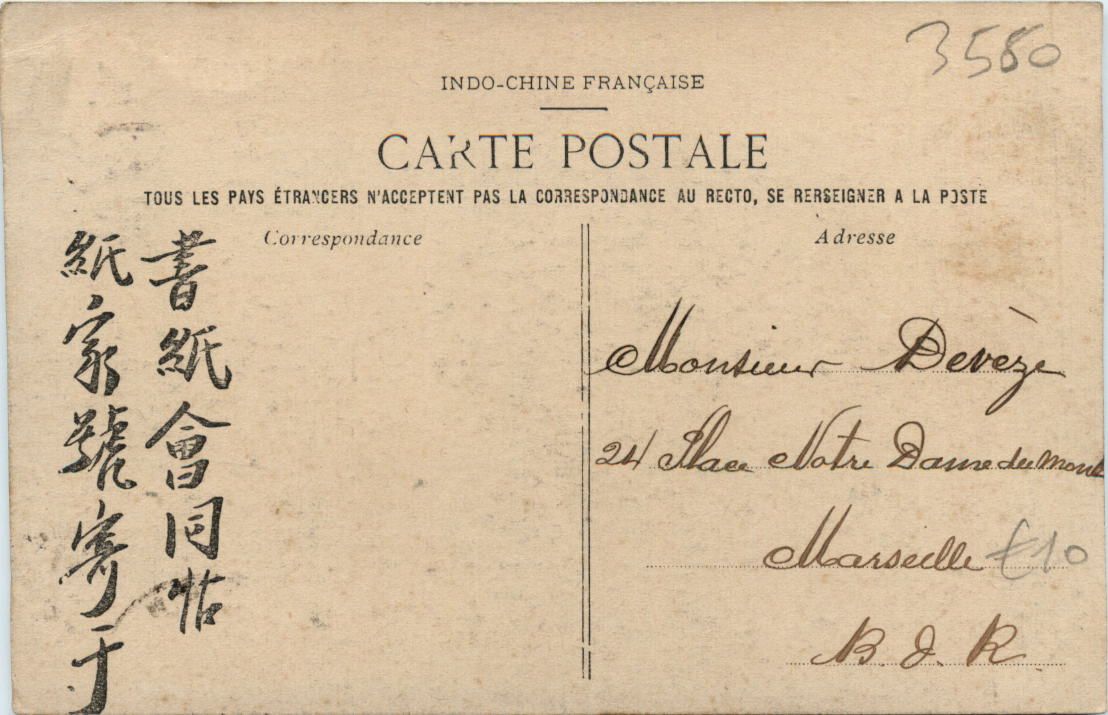 3580
INDO-CHINE FRANÇAISE
CARTE POSTALE
TOUS LES PAYS ÉTRANGERS N'ACCEPTENT PAS LA CORRESPONDANCE AU RECTO, SE RERSEIGNER A LA POSTE
Correspondance
Adresse
書紙會同帖
紙家號寄于
Monsieur Devèze
24 Place Notre Dame du Mont
Marseille
£10
B. d. R.